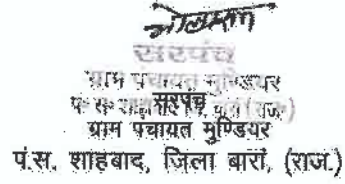 सरपंच
ग्राम पंचायत मुण्डियर
सरपंच
ग्राम पंचायत मुण्डियर
पं.स. शाहबाद, जिला बारां, (राज.)